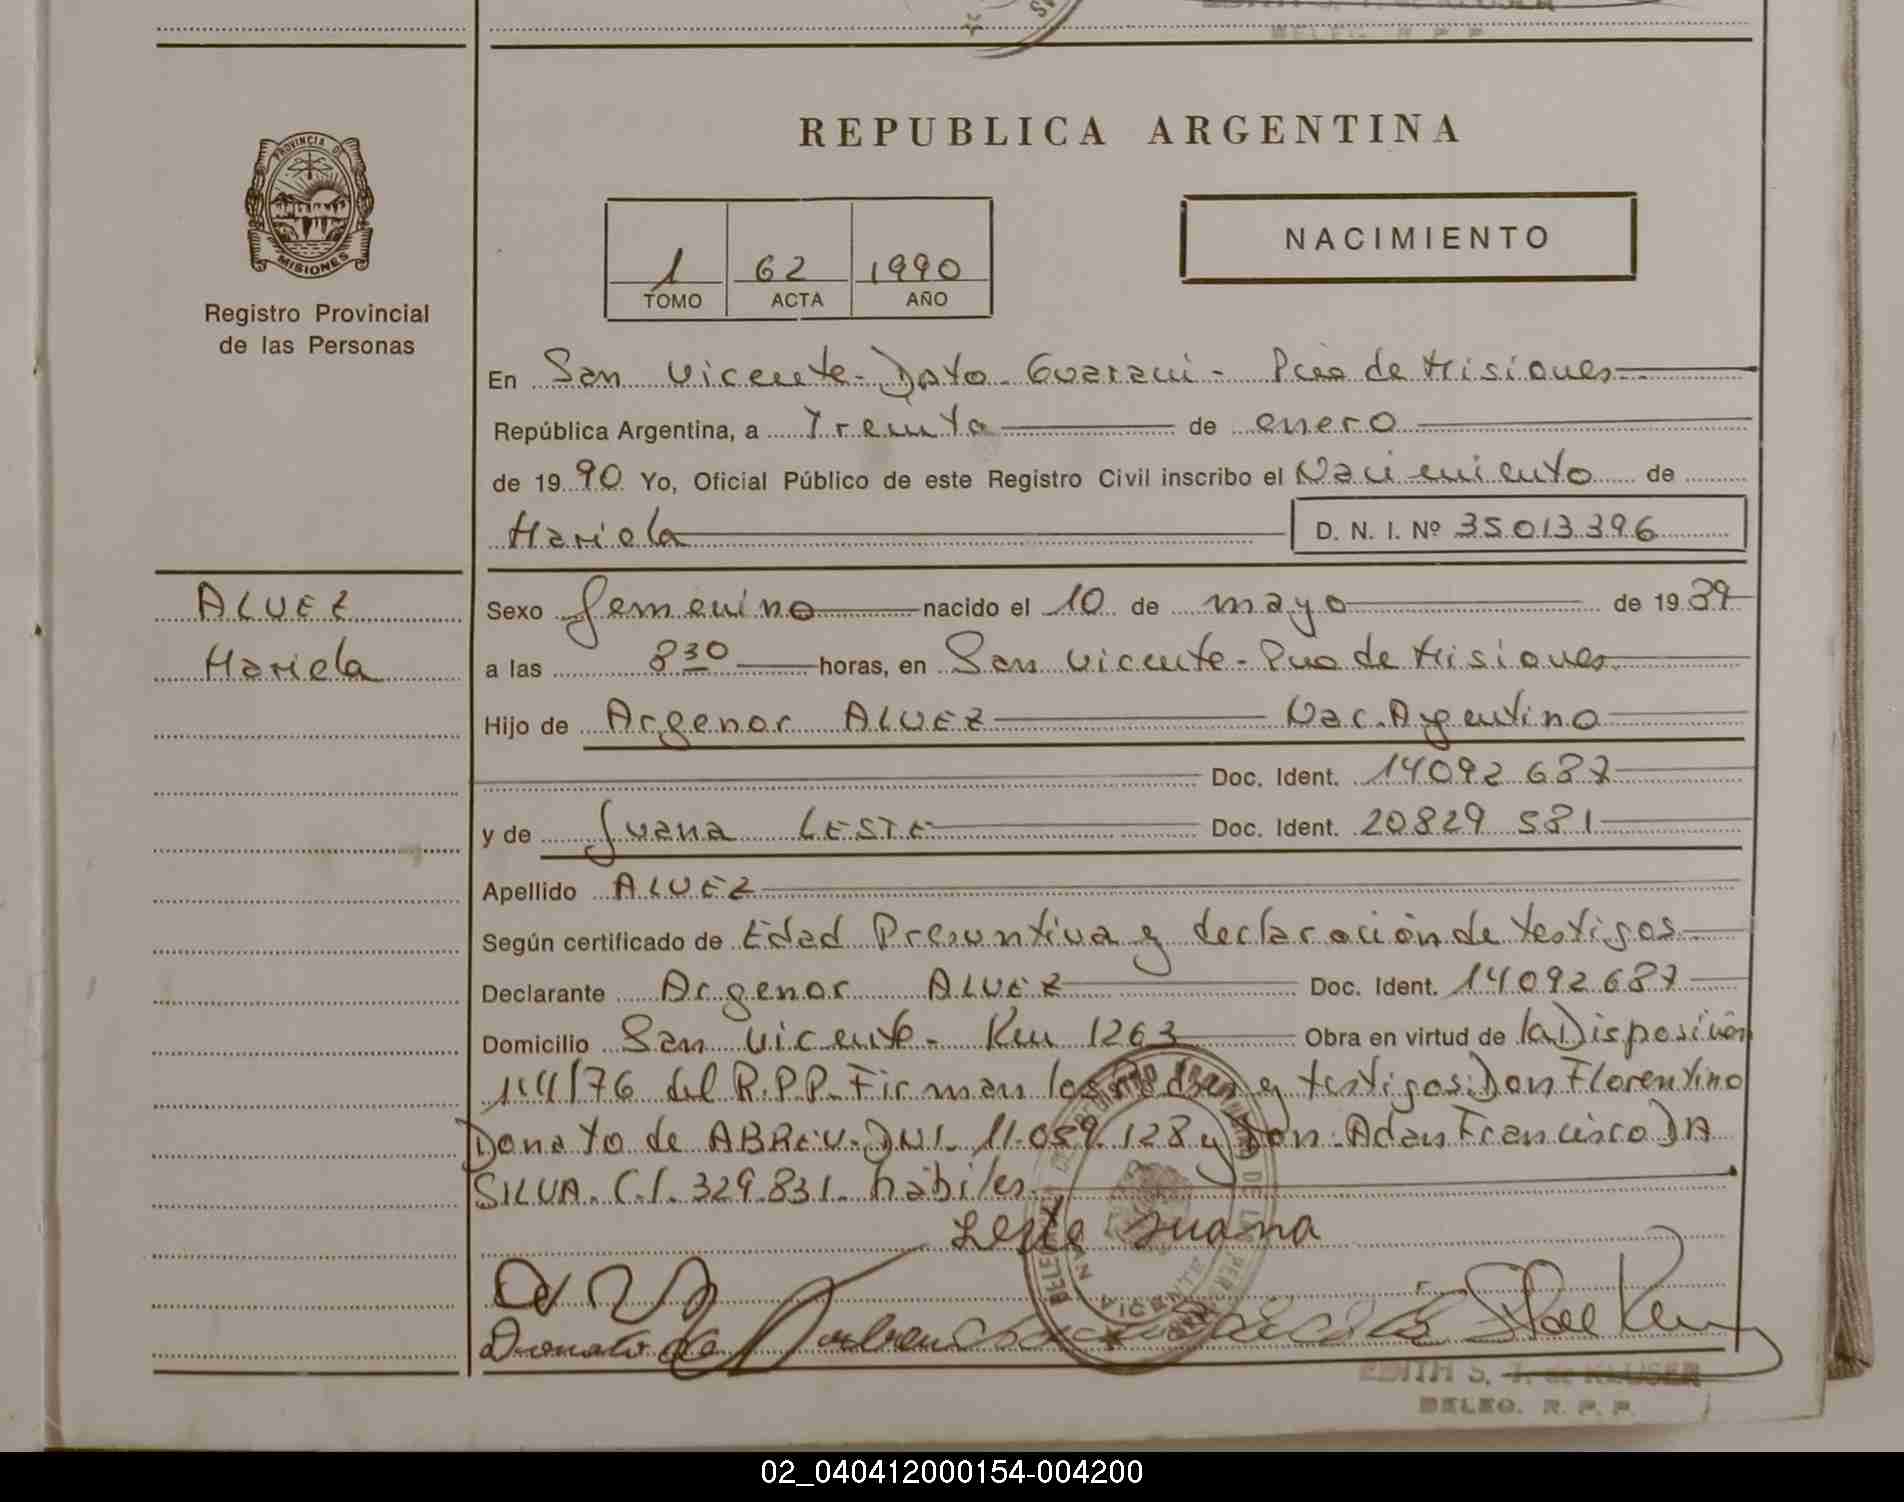 REPUBLICA ARGENTINA
PROVINCIA DE
MISIONES
Registro Provincial
de las Personas
1 62 1990
TOMO ACTA AÑO
NACIMIENTO
En San Vicente - Dpto. Guarani - Pcia de Misiones
República Argentina, a Treinta de enero
de 1990 Yo, Oficial Público de este Registro Civil inscribo el Nacimiento de
Mariela D. N. I. Nº 35013396
ALVEZ
Mariela
Sexo femenino nacido el 10 de mayo de 1989
a las 8 30 horas, en San Vicente - Pcia de Misiones
Hijo de Argenor ALVEZ Nac. Argentino
Doc. Ident. 14092687
y de Juana LESTE Doc. Ident. 20829581
Apellido ALVEZ
Según certificado de Edad Presuntiva y declaración de testigos
Declarante Argenor ALVEZ Doc. Ident. 14092687
Domicilio San Vicente - Km 1263 Obra en virtud de la Disposición
114/76 del R.P.P. Firman los Padres y testigos: Don Florentino
Donato de ABREU - DNI. 11.059.128 y Don Adan Francisco DA
SILVA. C.I. 329.831. hábiles.
Leste Juana
Donato de
EDITH S. T. de KLUSER
DELEG. R. P. P.
02_040412000154-004200